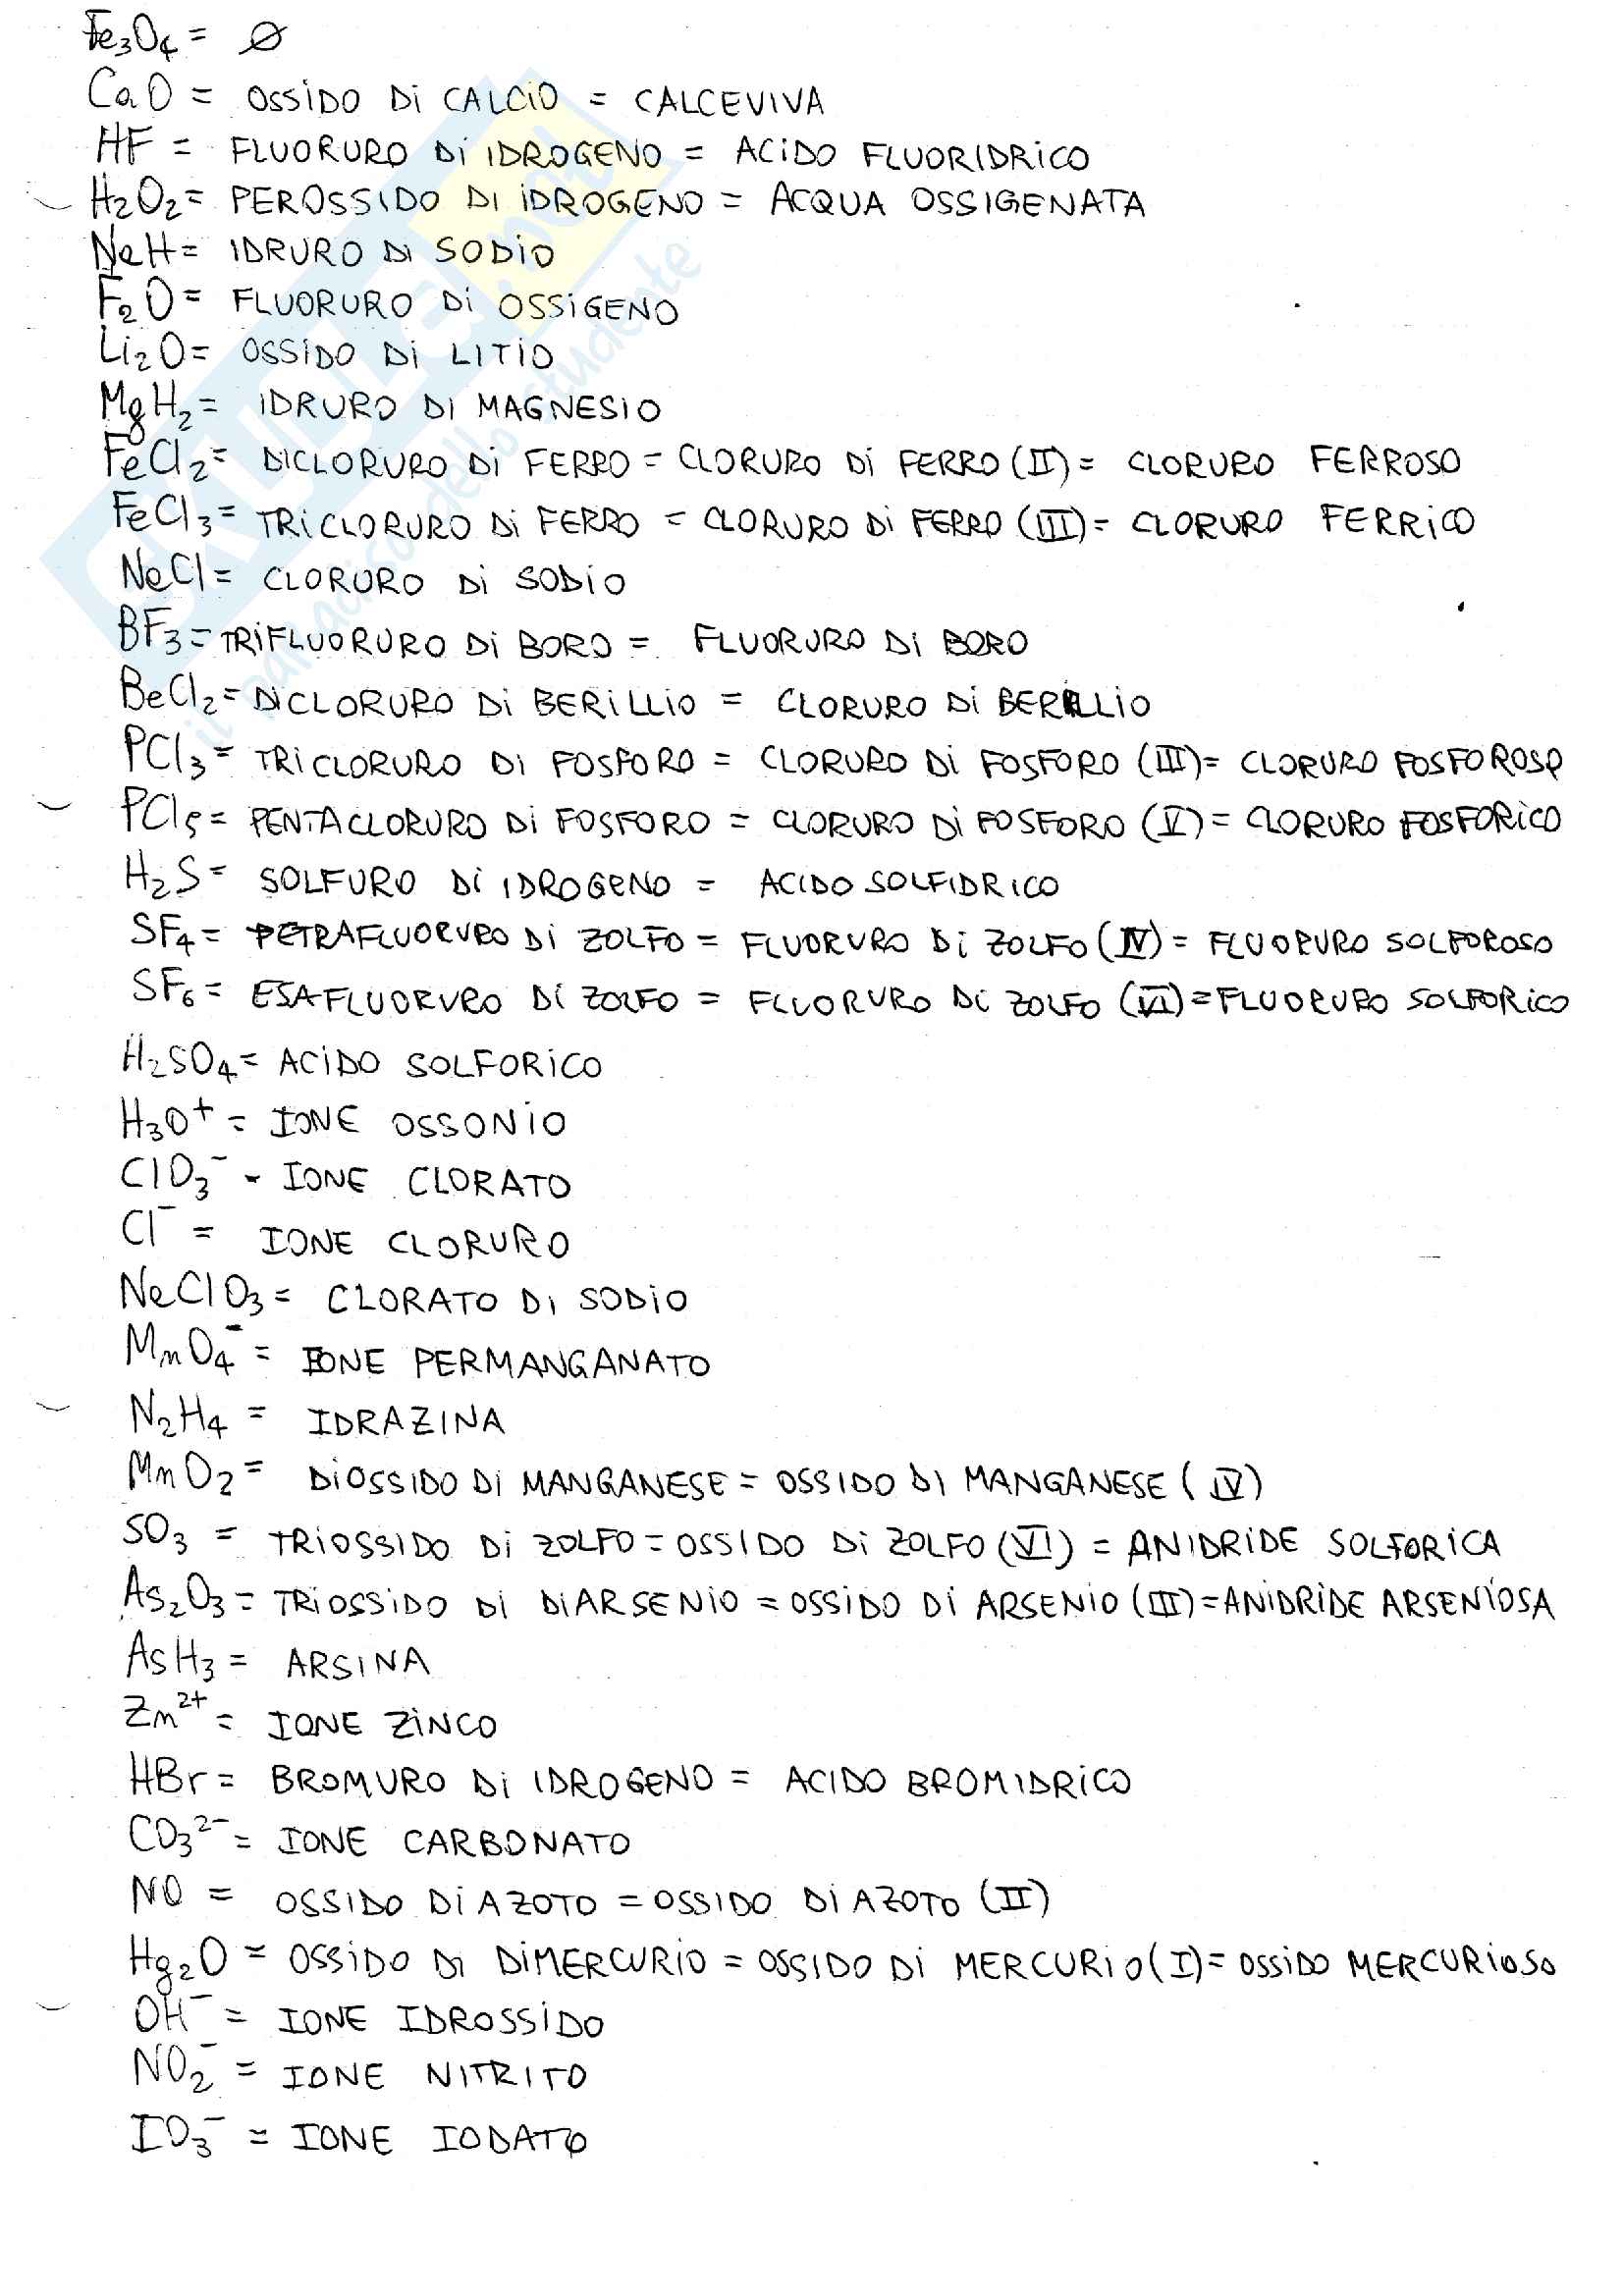 Fe₃O₄ = ∅
CaO = OSSIDO DI CALCIO = CALCEVIVA
HF = FLUORURO DI IDROGENO = ACIDO FLUORIDRICO
H₂O₂ = PEROSSIDO DI IDROGENO = ACQUA OSSIGENATA
NaH = IDRURO DI SODIO
F₂O = FLUORURO DI OSSIGENO
Li₂O = OSSIDO DI LITIO
MgH₂ = IDRURO DI MAGNESIO
FeCl₂ = DICLORURO DI FERRO = CLORURO DI FERRO (II) = CLORURO FERROSO
FeCl₃ = TRICLORURO DI FERRO = CLORURO DI FERRO (III) = CLORURO FERRICO
NaCl = CLORURO DI SODIO
BF₃ = TRIFLUORURO DI BORO = FLUORURO DI BORO
BeCl₂ = DICLORURO DI BERILLIO = CLORURO DI BERILLIO
PCl₃ = TRICLORURO DI FOSFORO = CLORURO DI FOSFORO (III) = CLORURO FOSFOROSO
PCl₅ = PENTACLORURO DI FOSFORO = CLORURO DI FOSFORO (V) = CLORURO FOSFORICO
H₂S = SOLFURO DI IDROGENO = ACIDO SOLFIDRICO
SF₄ = TETRAFLUORURO DI ZOLFO = FLUORURO DI ZOLFO (IV) = FLUORURO SOLFOROSO
SF₆ = ESAFLUORURO DI ZOLFO = FLUORURO DI ZOLFO (VI) = FLUORURO SOLFORICO
H₂SO₄ = ACIDO SOLFORICO
H₃O⁺ = IONE OSSONIO
ClO₃⁻ - IONE CLORATO
Cl⁻ = IONE CLORURO
NaClO₃ = CLORATO DI SODIO
MnO₄⁻ = IONE PERMANGANATO
N₂H₄ = IDRAZINA
MnO₂ = DIOSSIDO DI MANGANESE = OSSIDO DI MANGANESE (IV)
SO₃ = TRIOSSIDO DI ZOLFO = OSSIDO DI ZOLFO (VI) = ANIDRIDE SOLFORICA
As₂O₃ = TRIOSSIDO DI DIARSENIO = OSSIDO DI ARSENIO (III) = ANIDRIDE ARSENIOSA
AsH₃ = ARSINA
Zn²⁺ = IONE ZINCO
HBr = BROMURO DI IDROGENO = ACIDO BROMIDRICO
CO₃²⁻ = IONE CARBONATO
NO = OSSIDO DI AZOTO = OSSIDO DI AZOTO (II)
Hg₂O = OSSIDO DI DIMERCURIO = OSSIDO DI MERCURIO (I) = OSSIDO MERCURIOSO
OH⁻ = IONE IDROSSIDO
NO₂⁻ = IONE NITRITO
IO₃⁻ = IONE IODATO
SKUOLA.net
il paradiso dello studente